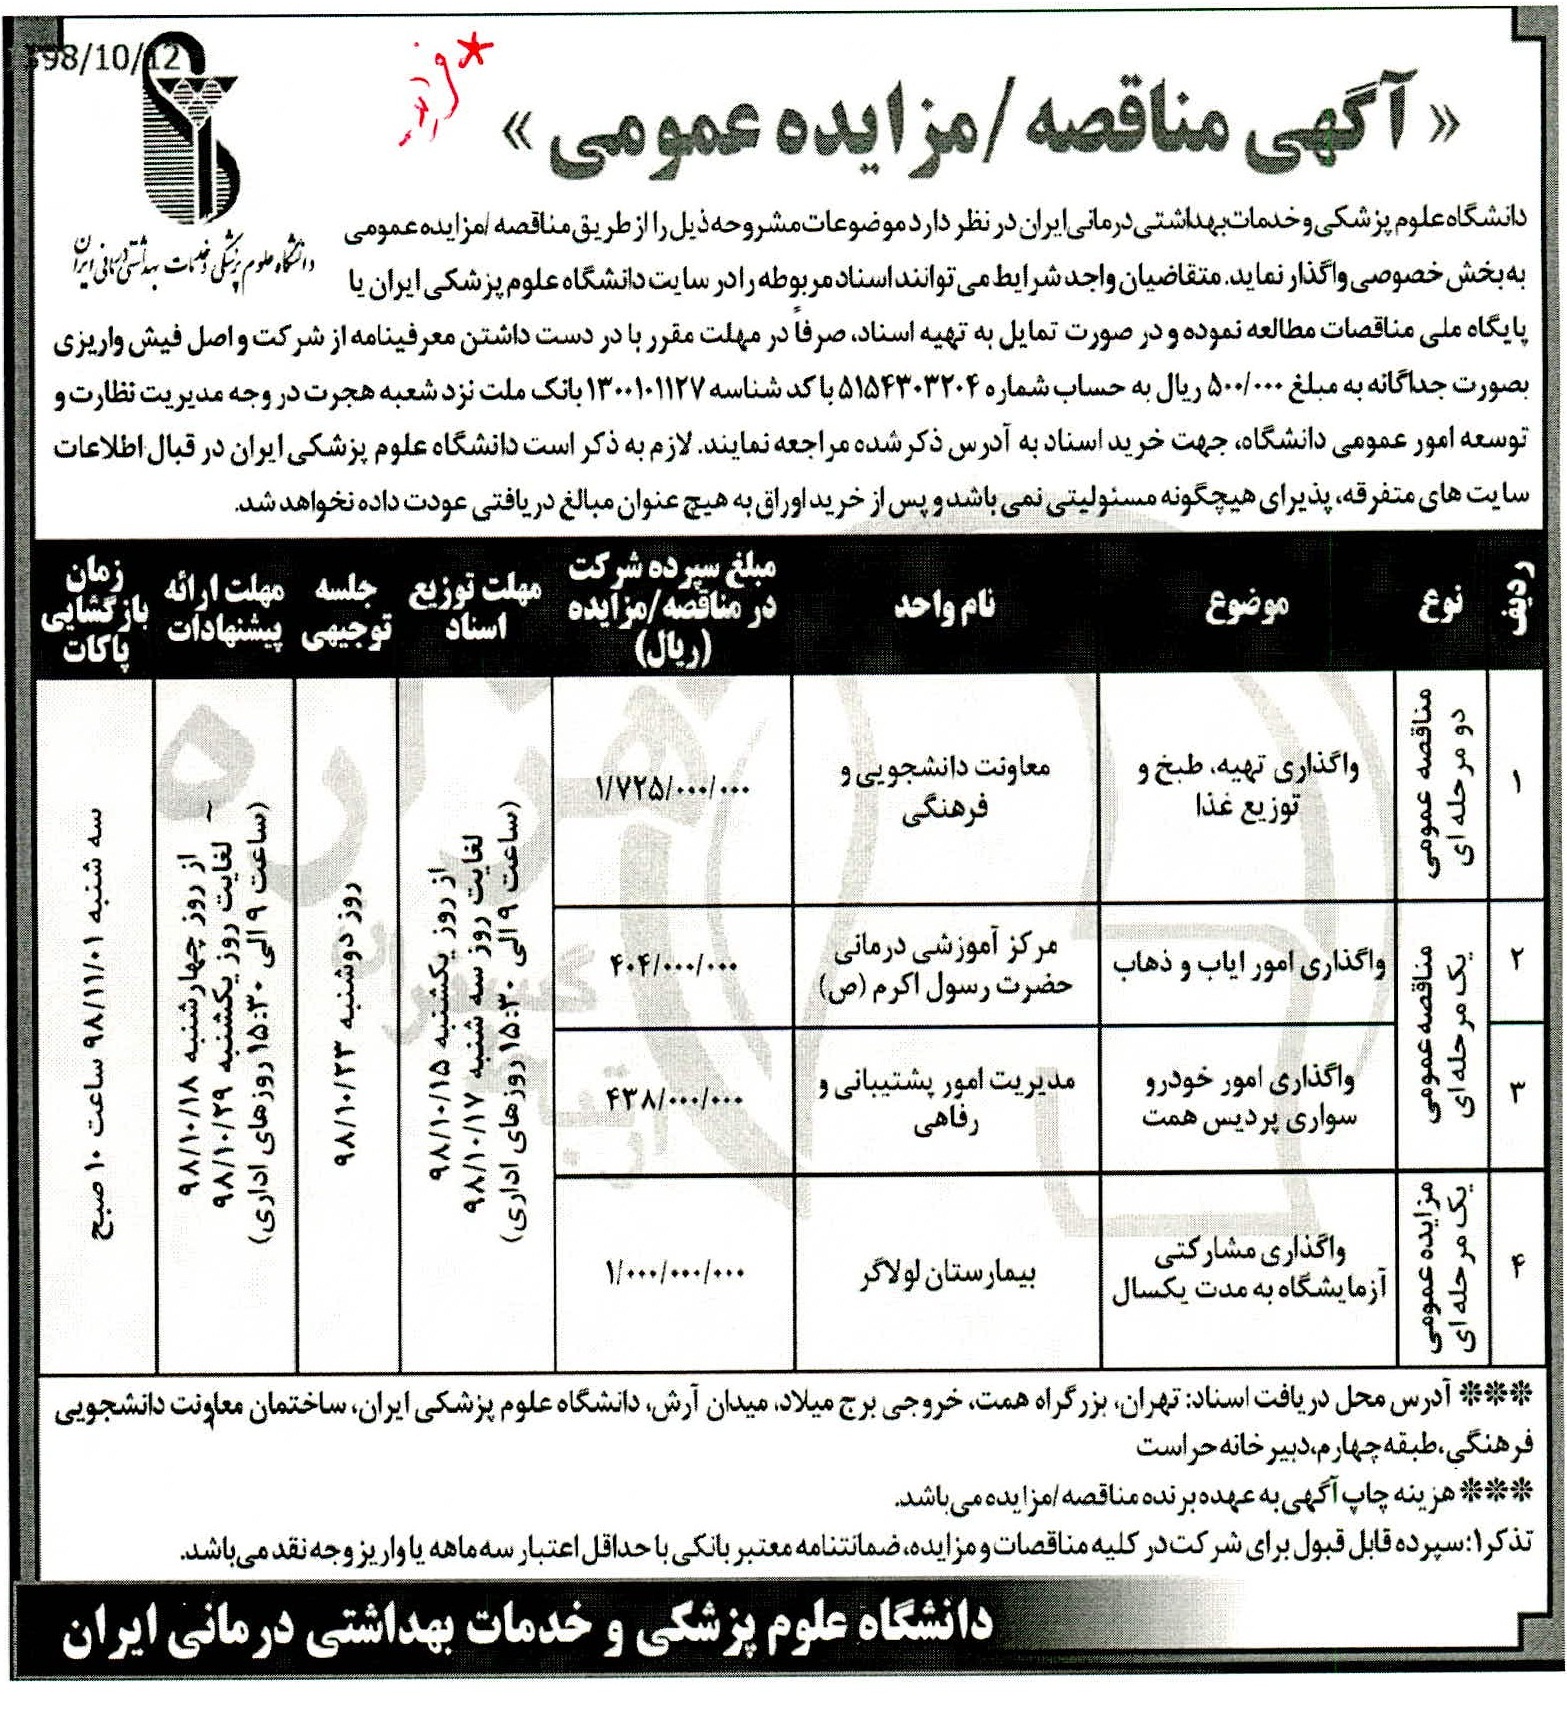 398/10/12
« آگهی مناقصه /مزایده عمومی »
دانشگاه علوم پزشکی و خدمات بهداشتی درمانی ایران
دانشگاه علوم پزشکی و خدمات بهداشتی درمانی ایران در نظر دارد موضوعات مشروحه ذیل را از طریق مناقصه /مزایده عمومی
به بخش خصوصی واگذار نماید. متقاضیان واجد شرایط می توانند اسناد مربوطه را در سایت دانشگاه علوم پزشکی ایران یا
پایگاه ملی مناقصات مطالعه نموده و در صورت تمایل به تهیه اسناد، صرفاً در مهلت مقرر با در دست داشتن معرفینامه از شرکت و اصل فیش واریزی
بصورت جداگانه به مبلغ ۵۰۰/۰۰۰ ریال به حساب شماره ۵۱۵۴۳۰۳۲۰۴ با کد شناسه ۱۳۰۰۱۰۱۱۲۷ بانک ملت نزد شعبه هجرت در وجه مدیریت نظارت و
توسعه امور عمومی دانشگاه، جهت خرید اسناد به آدرس ذکر شده مراجعه نمایند. لازم به ذکر است دانشگاه علوم پزشکی ایران در قبال اطلاعات
سایت های متفرقه، پذیرای هیچگونه مسئولیتی نمی باشد و پس از خرید اوراق به هیچ عنوان مبالغ دریافتی عودت داده نخواهد شد.
ردیف
نوع
موضوع
نام واحد
مبلغ سپرده شرکت
در مناقصه/مزایده
(ریال)
مهلت توزیع
اسناد
جلسه
توجیهی
مهلت ارائه
پیشنهادات
زمان
بازگشایی
پاکات
۱
مناقصه عمومی
دو مرحله ای
واگذاری تهیه، طبخ و
توزیع غذا
معاونت دانشجویی و
فرهنگی
۱/۷۲۵/۰۰۰/۰۰۰
از روز یکشنبه ۹۸/۱۰/۱۵
لغایت روز سه شنبه ۹۸/۱۰/۱۷
(ساعت ۹ الی ۱۵:۳۰ روزهای اداری)
روز دوشنبه ۹۸/۱۰/۲۳
از روز چهارشنبه ۹۸/۱۰/۱۸ ~
لغایت روز یکشنبه ۹۸/۱۰/۲۹
(ساعت ۹ الی ۱۵:۳۰ روزهای اداری)
سه شنبه ۹۸/۱۱/۰۱ ساعت ۱۰ صبح
۲
مناقصه عمومی
یک مرحله ای
واگذاری امور ایاب و ذهاب
مرکز آموزشی درمانی
حضرت رسول اکرم (ص)
۴۰۴/۰۰۰/۰۰۰
۳
واگذاری امور خودرو
سواری پردیس همت
مدیریت امور پشتیبانی و
رفاهی
۴۳۸/۰۰۰/۰۰۰
۴
مزایده عمومی
یک مرحله ای
واگذاری مشارکتی
آزمایشگاه به مدت یکسال
بیمارستان لولاگر
۱/۰۰۰/۰۰۰/۰۰۰
*** آدرس محل دریافت اسناد: تهران، بزرگراه همت، خروجی برج میلاد، میدان آرش، دانشگاه علوم پزشکی ایران، ساختمان معاونت دانشجویی
فرهنگی،طبقه چهارم،دبیرخانه حراست
*** هزینه چاپ آگهی به عهده برنده مناقصه/مزایده می باشد.
تذکر۱: سپرده قابل قبول برای شرکت در کلیه مناقصات و مزایده، ضمانتنامه معتبر بانکی با حداقل اعتبار سه ماهه یا واریز وجه نقد می باشد.
دانشگاه علوم پزشکی و خدمات بهداشتی درمانی ایران